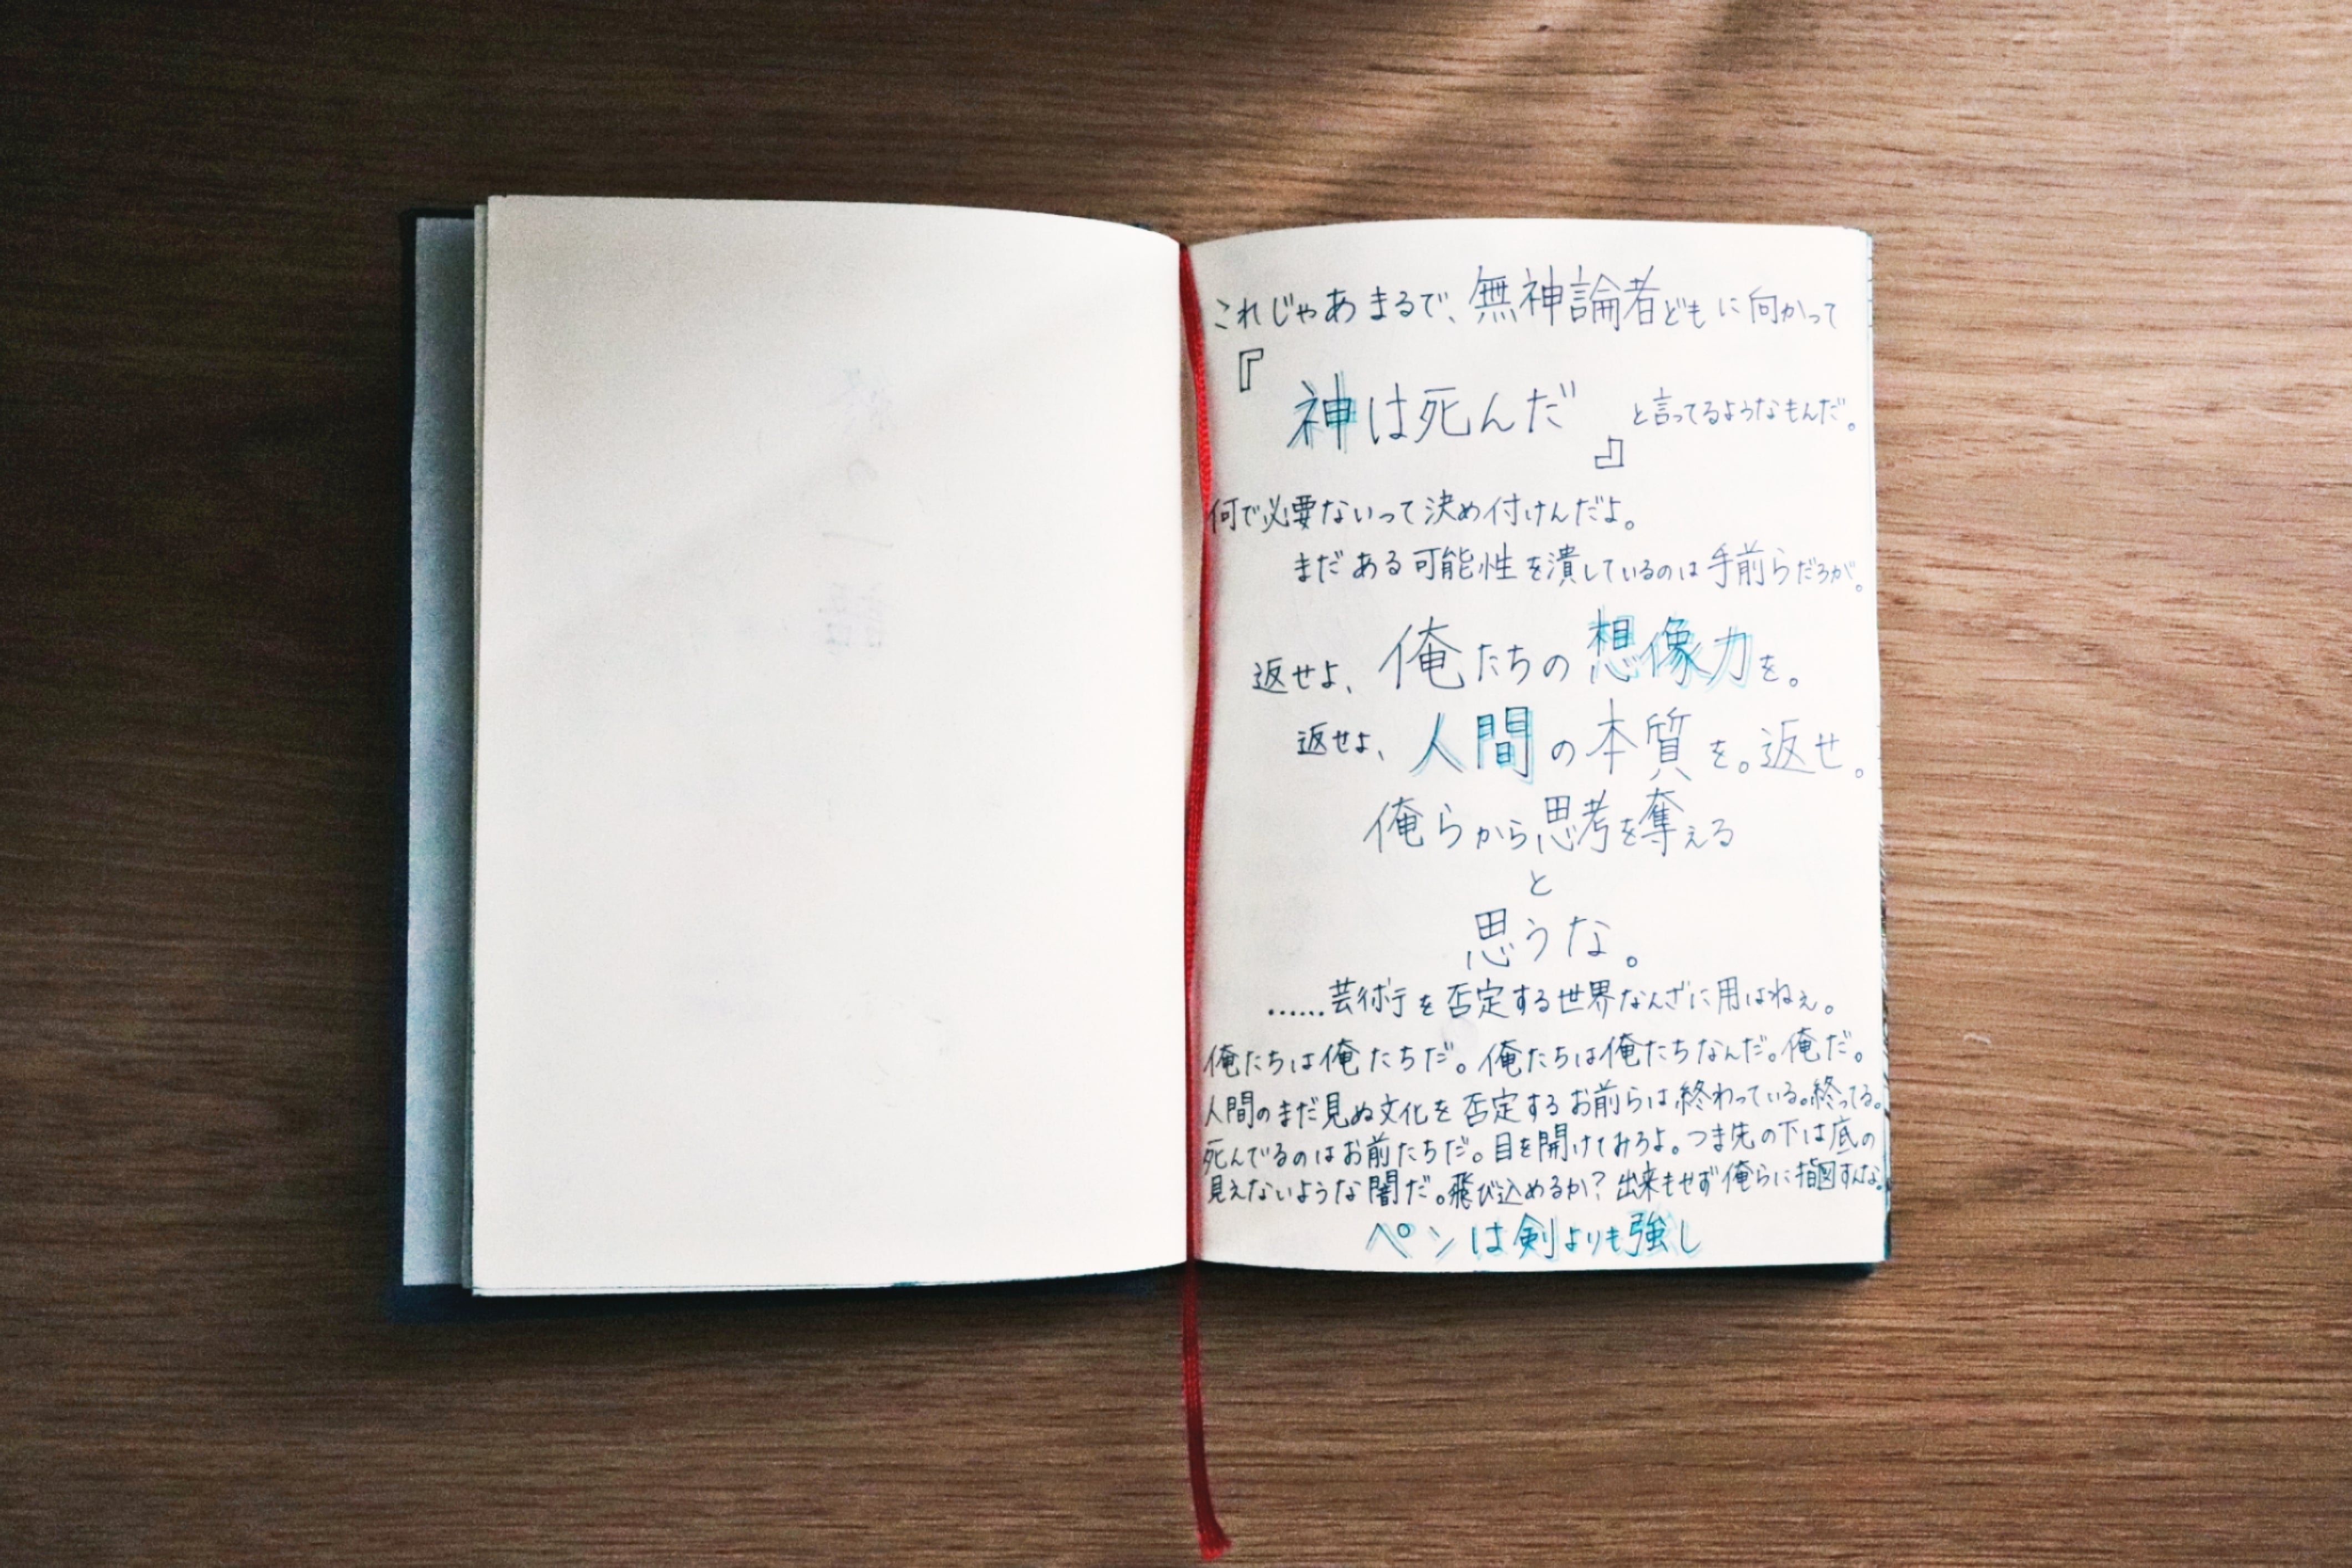 これじゃあまるで、無神論者どもに向かって
『神は死んだ』と言ってるようなもんだ。
何で必要ないって決め付けんだよ。
まだある可能性を潰しているのは手前らだろが。
返せよ、俺たちの想像力を。
返せよ、人間の本質を。返せ。
俺らから思考を奪える
と
思うな。
……芸術を否定する世界なんざに用はねぇ。
俺たちは俺たちだ。俺たちは俺たちなんだ。俺だ。
人間のまだ見ぬ文化を否定するお前らは終わっている。終ってる。
死んでるのはお前たちだ。目を開けてみろよ。つま先の下は底の
見えないような闇だ。飛び込めるか？出来もせず俺らに指図すんな。
ペンは剣よりも強し